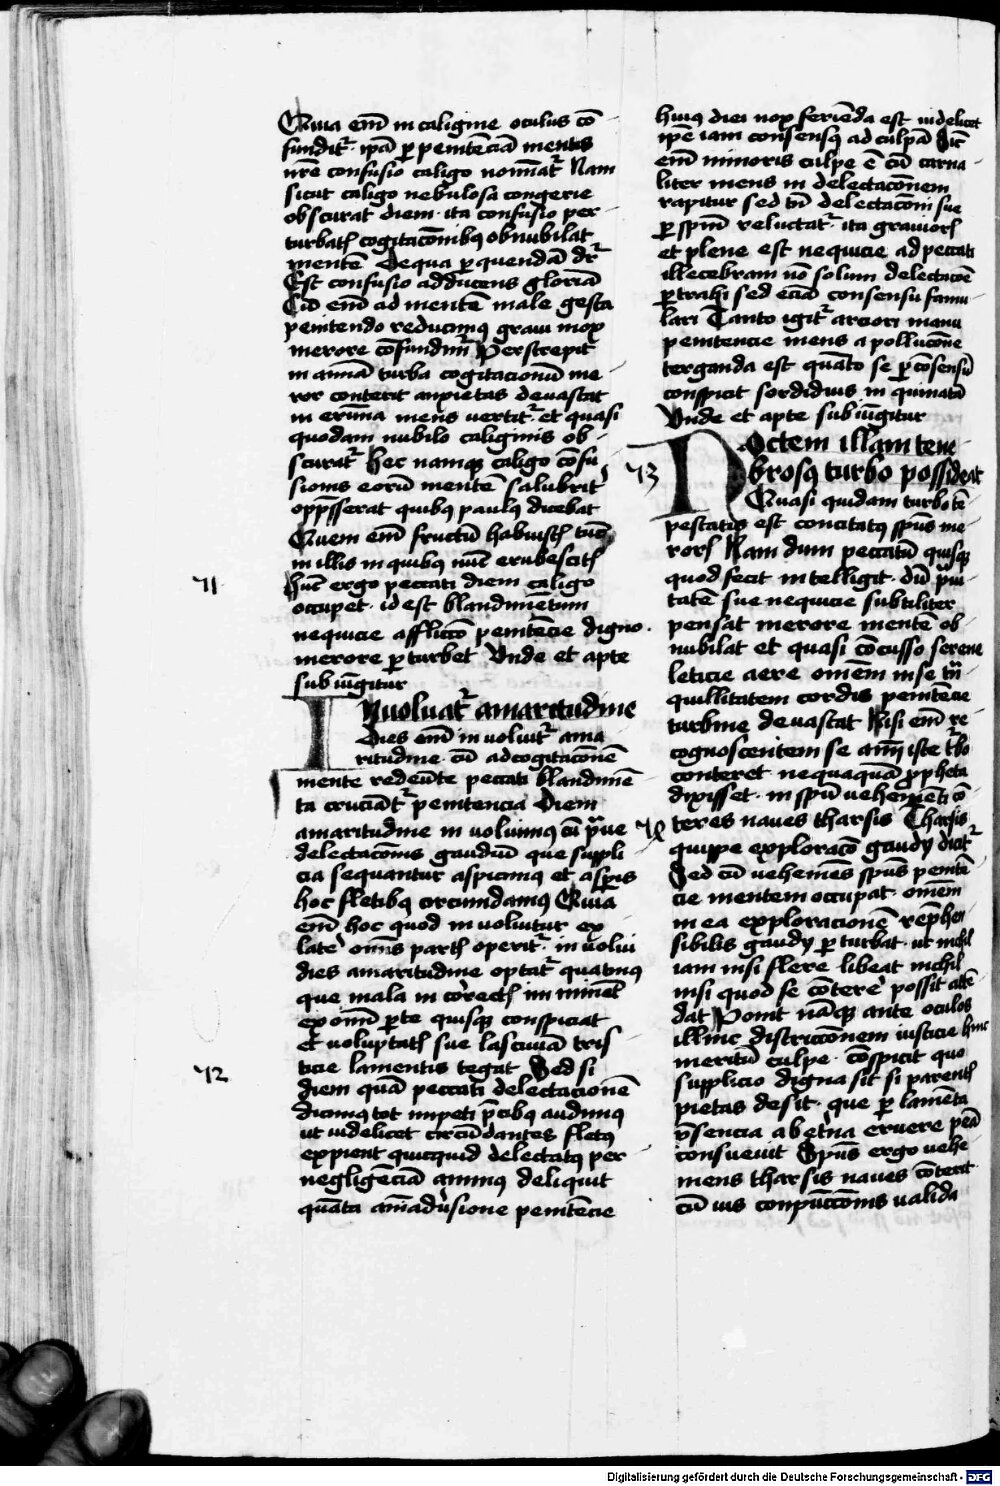 Quia em̄ in caligine oculus cō
fundit᷑ · ip̄a ꝑ penitēciā mentis
nr̄e confusio caligo noīnat᷑ Nam
sicut caligo nebulosa congerie
obscurat diem · ita confusio per
turbatꝭ cogitacōnibꝰ obnubilat
mentē De qua ꝑ quendā dr̄
Est confusio adducens gloriā
Cū em̄ ad mentē male gesta
penitendo reducimꝰ graui mox
merore cōfundim᷑ Perstrepit
in animā turba cogitacionū me
ror conterit anxietas deuastat
in erūna mens vertit᷑ · et quasi
quodam nubilo caliginis ob
scurat᷑ Hec namqꝫ caligo cōfu
sionis eorū mentē salubrit᷑
opp̄sserat quibꝰ paulꝰ dicebat
Quem em̄ fructū habuistꝭ tūc
in illis in quibꝰ nūc erubescitꝭ
71
Hūc ergo peccati diem caligo
occupet · id est blandimētum
nequicie afflictō penitēcie digno
merore ꝑturbet Vnde et apte
subiūgitur
INuoluat᷑ amaritudine
Dies em̄ inuoluit᷑ ama
ritudine · cū ad cogitacōnē
mente redeūte peccati blandimē
ta cruciāt᷑ penitencia Diem
amaritudine inuoluimꝰ cū p̄ue
delectacōnis gaudiū que suppli
cia sequantur aspicimꝰ et aspis
hoc fletibꝰ circumdamꝰ Quia
em̄ hoc quod inuoluitur ex
late᷑ om̄s partꝭ operit᷑ · inuolui
dies amaritudine optat᷑ quatinꝰ
que mala in cōrectꝭ iminēt
ex om̄i ꝑte quisqꝫ conspiciat
et voluptatꝭ sue lasciuiā tris
ticie lamentis tegat Sed si
72
diem quā peccati delectacionē
dicimꝰ tot impeti p̄cibꝰ audimꝰ
ut videlicet circūdantes fletꝰ
expient quicquid delectatꝰ per
negligēciā animꝰ deliquit
quāta aīadu᷑sione penitēcie
huiꝰ diei nox feriēda est videlicet
ip̄e iam consensꝰ ad culpā Sic᷑
em̄ minoris culpe ē cū carna
liter mens in delectacōnem
rapitur sed tn̄ delectacōni sue
ꝑ spm̄ reluctat᷑ · ita grauiorꝭ
et plene est nequicie ad peccati
illecebram nō solum delectacōe
ꝑtrahi sed eciā consensu famu
lari Tanto igit᷑ arciori manu
penitencie mens a pollucōne
terganda est quāto se ꝑ cōsensū
conspicit sordidius inquinatā
Vnde et apte subiūgitur
73
NOctem illam tene
brosꝰ turbo possideat
Quasi quidam turbo tē
pestatis est concitatꝰ spūs me
rorꝭ Nam dum peccatū quisqꝫ
quod fecit intelligit · dū p̄ui
tatē sue nequicie subtiliter
pensat merore mentē ob
nubilat et quasi cōcusso serene
leticie aere om̄em in se tn̄
quillitatem cordis penitēcie
turbine deuastat Nisi em̄ re
cognoscentem se aīm iste t᷑bo
conteret · nequaquā ꝓpheta
dixisset · in spū vehemēti cō
teres naues tharsis Tharsis
quippe exploracō gaudij dicit᷑
Sed cū vehemēs spūs penitē
cie mentem occupat · om̄em
in ea exploracionē rep̄hen
sibilis gaudij ꝑturbat · ut nichil
iam nisi flere libeat nichil
nisi quod se cōtere᷑ possit attē
dat Ponit nāqꝫ ante oculos
illinc districcōnem iusticie hinc
meritū culpe · cōspicit quo
supplicio digna sit si parentꝭ
pietas desit · que ꝑ lamēta
p̄sencia ab et᷑na eruere penā
consueuit Spūs ergo vehe
mens tharsis naues cōterit
cū vis conpūccōnis valida